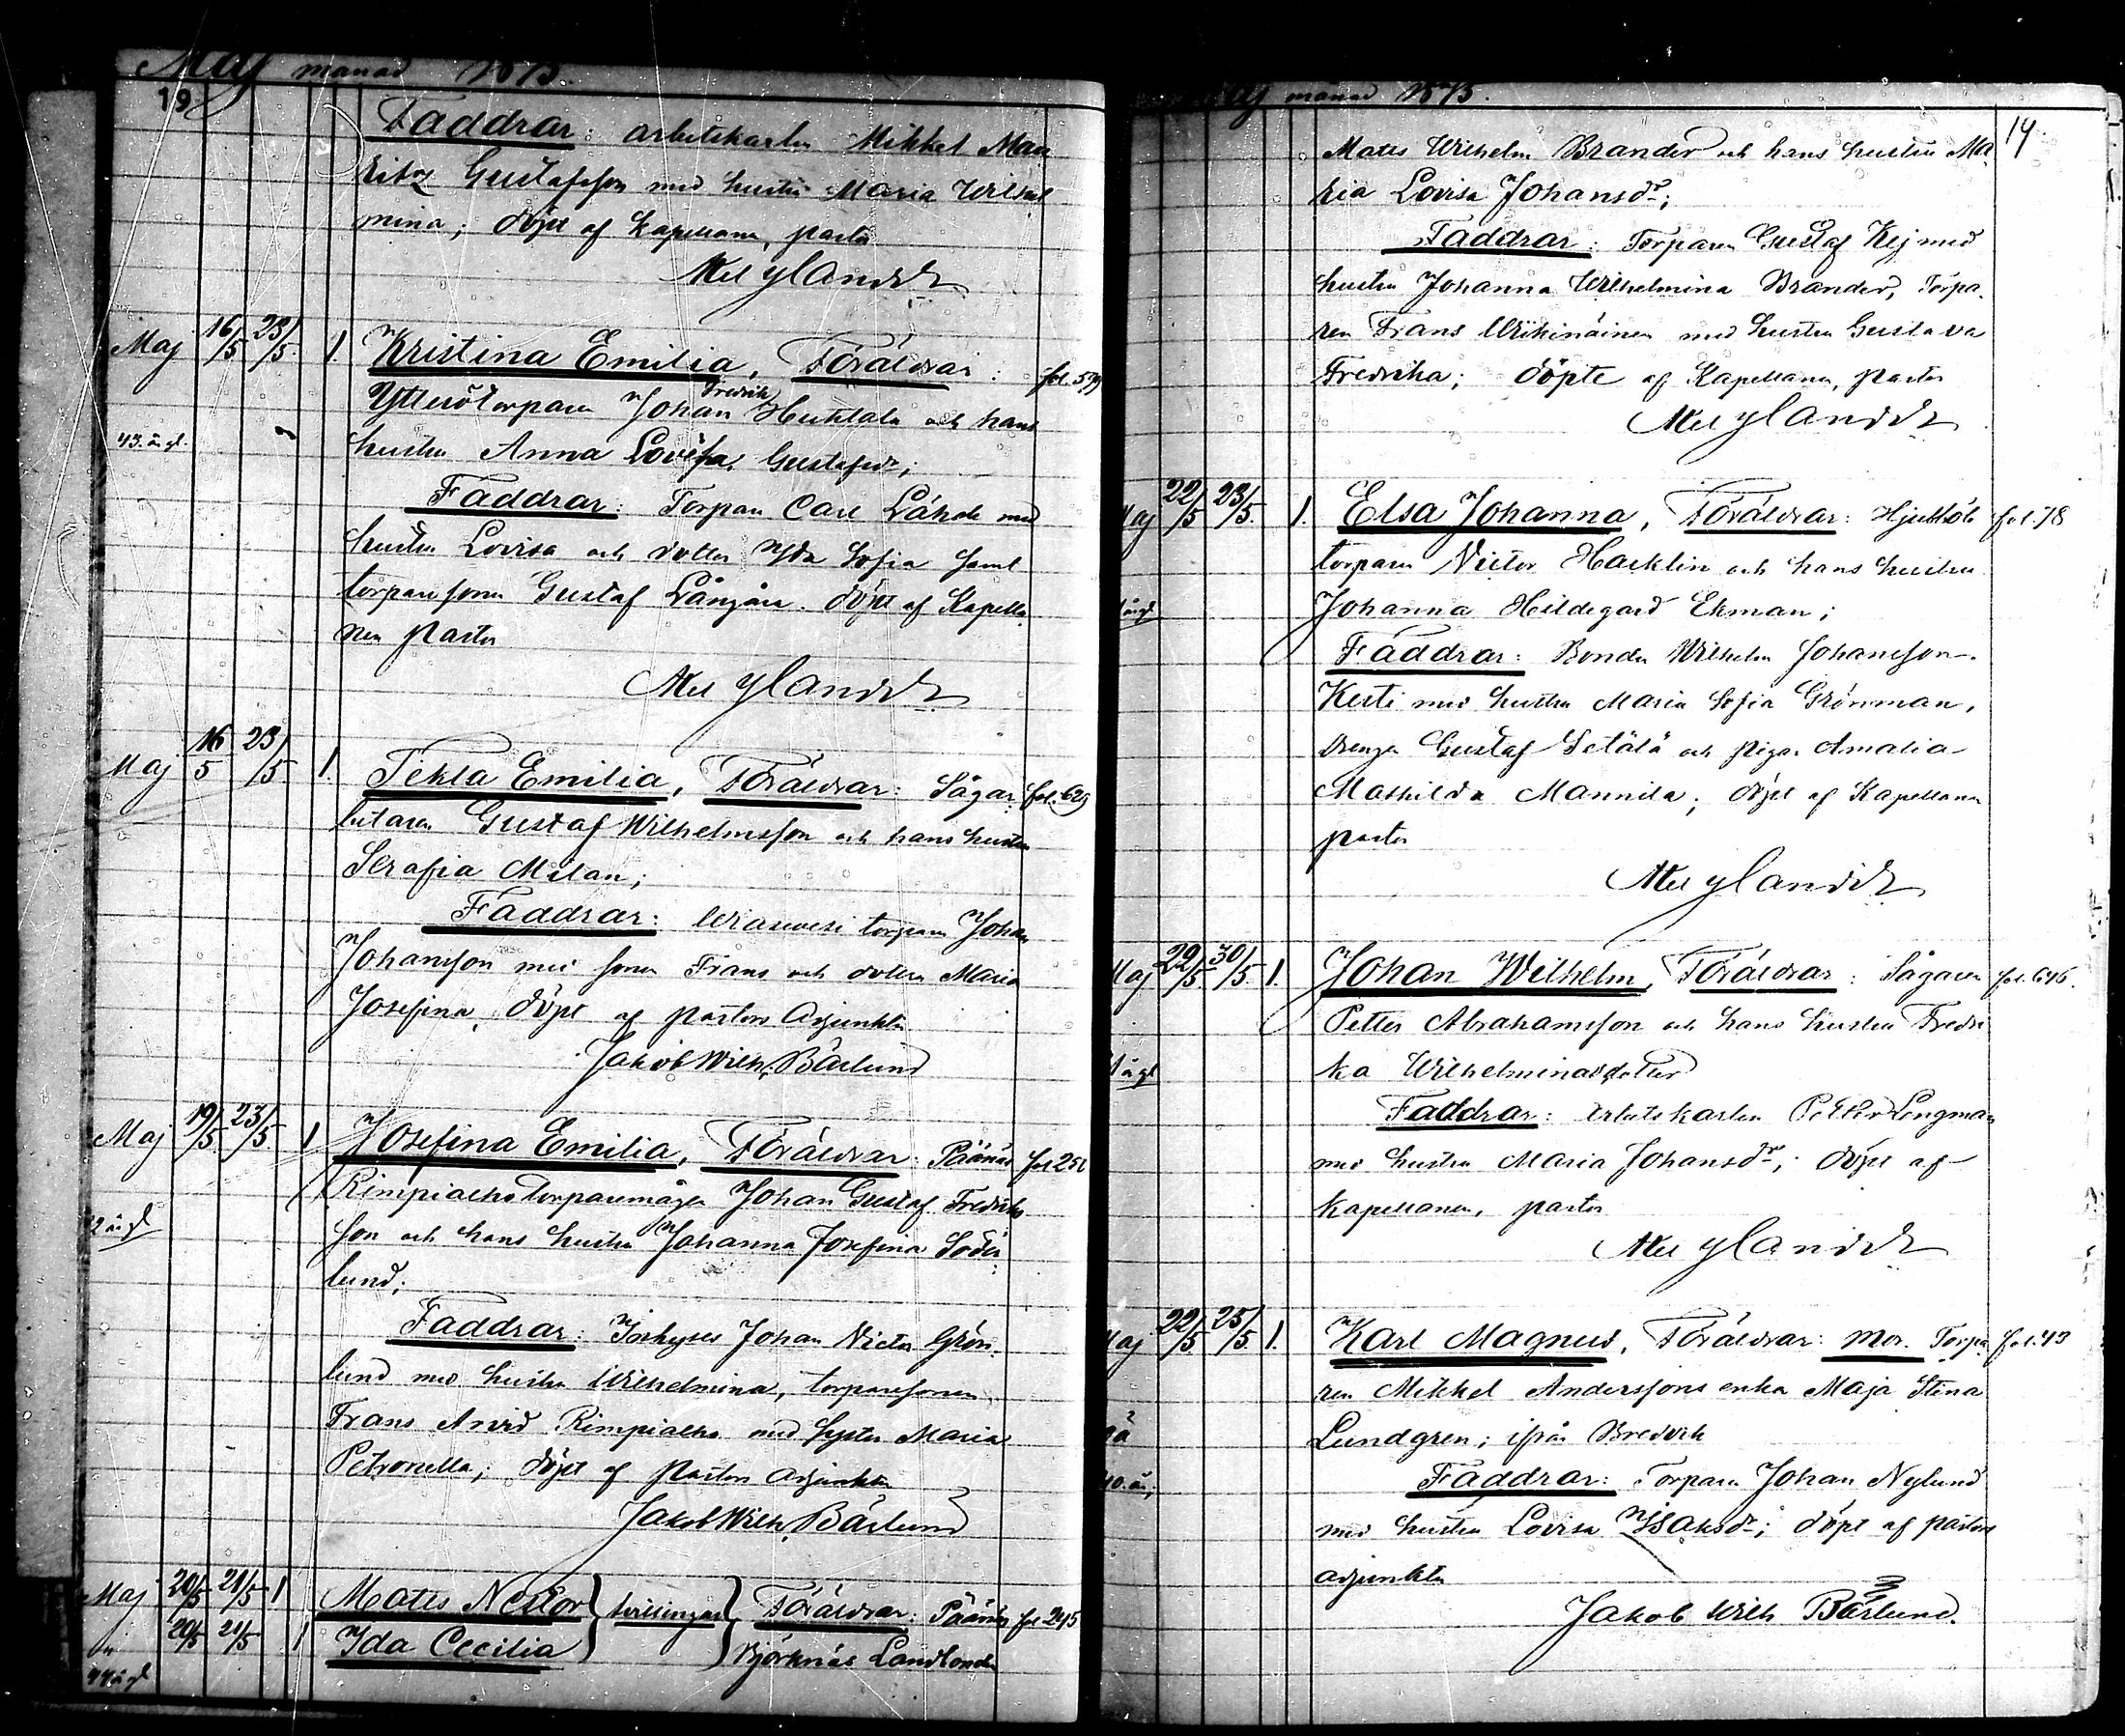 Maj månad 1873.
19
Faddrar: arbetskarlen Mikkel Mau
ritz Gustafsson med hustru Maria Wilhel
mina; döpt af Kapellanen, pastor
Nylander
Maj 16/5 23/5. 1. Kristina Emilia, Föräldrar: fol. 579
Ytterötorparen Johan Fredrik Huhtala och hans
43. år gl. hustru Anna Lovisa Gustafsdr;
Faddrar: Torparen Carl Lähde med
hustru Lovisa och dotter Ida Sofia samt
torparesonen Gustaf Långåra. döpt af Kapella
nen pastor
Nylander
Maj 16/5 23/5. 1. Tekla Emilia, Föräldrar: Sågar fol. 629
betaren Gustaf Wilhelmsson och hans hustru
Serafia Milan;
Faddrar: torparen Johan
Johansson med sonen Frans och dottern Maria
Josefina, döpt af pastors adjunkten
Jakob Wilh. Bärlund
Maj 19/5 23/5. 1 Josefina Emilia, Föräldrar: Päänäs fol 251
Rimpiaho torparemågen Johan Gustaf Fredriks
2 år gl son och hans hustru Johanna Josefina Söder
lund;
Faddrar: Johan Victor Grön
lund med hustru Wilhelmina, torparesonen
Frans Arvid Rimpiaho med syster Maria
Petronella; döpt af pastors adjunkten
Jakob Wilh. Bärlund
Maj 20/5 21/5 1 Matts Nestor } tvillingar } Föräldrar: Päänäs fol 245
" 20/5 21/5 1 Ida Cecilia } Björknäs Landbonden
44 år gl
Maj månad 1873.
14.
Matts Wilhelm Brander och hans hustru Ma
ria Lovisa Johansdr;
Faddrar: Torparen Gustaf Kej med
hustru Johanna Wilhelmina Brander, Torpa
ren Frans Wikinäinen med hustru Gustava
Fredrika; döpte af Kapellanen, pastor
Nylander
Maj 22/5 23/5. 1. Elsa Johanna, Föräldrar: Hjulböle fol. 78
torparen Victor Hacklin och hans hustru
år gl Johanna Hildegard Ekman;
Faddrar: Bonden Wilhelm Johansson
Kesti med hustru Maria Sofia Grönman,
drengen Gustaf Setälä och pigan Amalia
Mathilda Mannila; döpt af Kapellanen
pastor
Nylander
Maj 29/5. 30/5. 1. Johan Wilhelm, Föräldrar: Sågaren fol. 646.
Petter Abrahamsson och hans hustru Fredri
år gl ka Wilhelminasdotter
Faddrar: arbetskarlen Petter Lengman
med hustru Maria Johansdr; döpt af
kapellanen, pastor
Nylander
Maj 22/5 25/5. 1. Karl Magnus, Föräldrar: mor. Torpa fol. 43
ren Mikkel Anderssons enka Maja Stina
Lundgren; ifrån Bredvik
40. år, Faddrar: Torparen Johan Nylund
med hustru Lovisa Isaksdr; döpt af pastors
adjunkten
Jakob Wilh Bärlund.